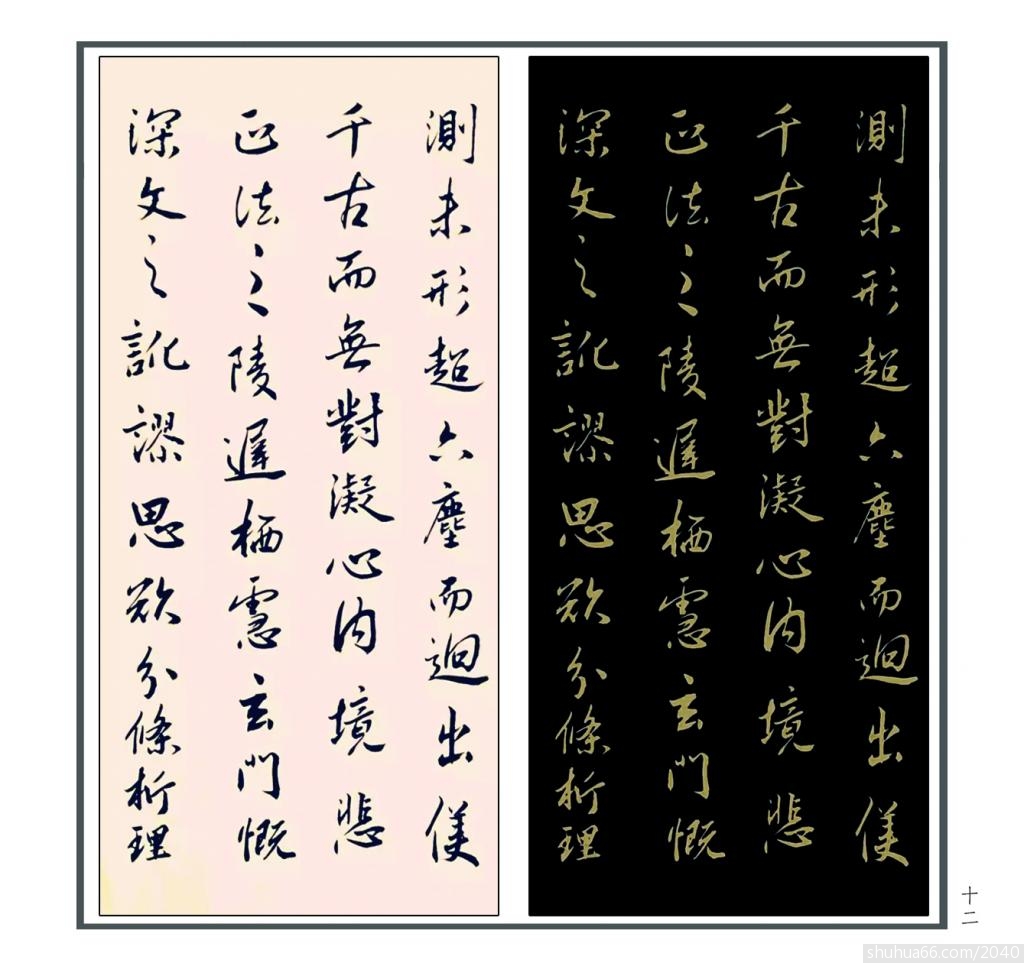 測未形超六塵而迥出使
千古而無對凝心内境悲
正法之陵遲栖慮玄門慨
深文之訛謬思欲分條析理
測未形超六塵而迥出使
千古而無對凝心内境悲
正法之陵遲栖慮玄門慨
深文之訛謬思欲分條析理
十二
shuhua66.com/2040